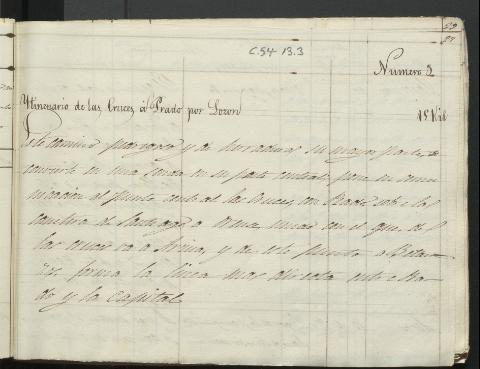 59
C.54 13.3
Numero 3
Ytinerario de las Cruces á Prado por Lozon
15 Kil
Este camino y de herradura su mayor parte, se
convierte en una senda en su parte central pone en comu
nicacion el punto central las Cruces con Prado sobre la
carretera de Santiago a Orense, con el que de
las cruces va a Arzua, y de este punto a Betan
zos forma la linea mas directa entre Pra
do y la capital